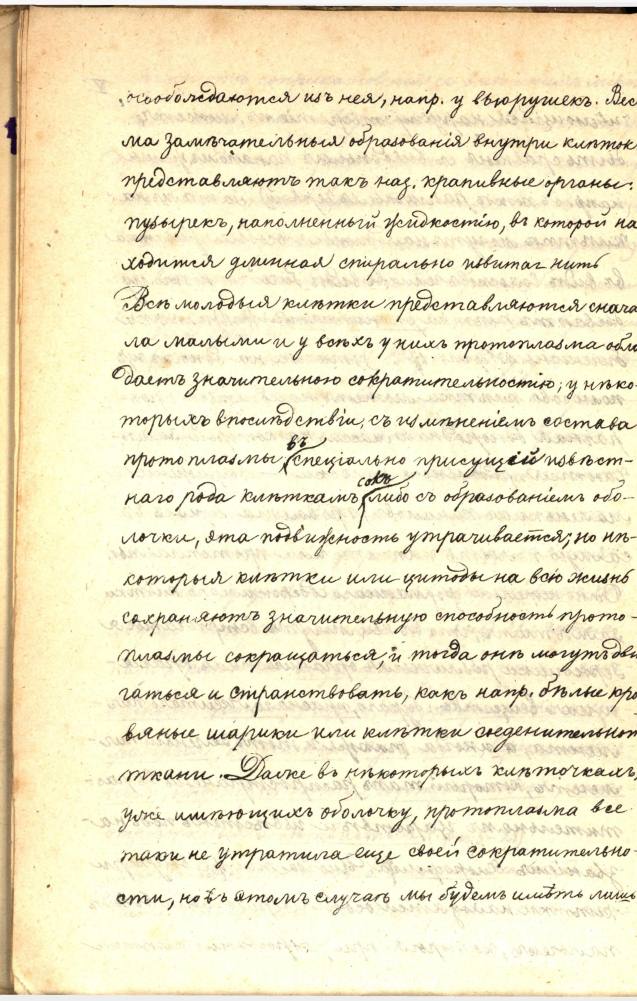 освобождаются изъ нея, напр. у вьюрушекъ. Вес
ма замѣчательныя образованія внутри клѣток
представляютъ такъ наз. крапивные органы:
пузырекъ, наполненный жидкостію, въ которой на
ходится длинная спирально извитая нить
Всѣ молодыя клѣтки представляются снача
ла малыми и у всѣхъ у нихъ протоплазма обла
даетъ значительною сократительностію; у нѣко-
торыхъ впослѣдствіи, съ измѣненіемъ состава
протоплазмы, въ спеціально присущій извѣст-
наго рода клѣткамъ сокъ либо съ образованіемъ обо-
лочки, эта подвижность утрачивается; но нѣ-
которыя клѣтки или цитоды на всю жизнь
сохраняютъ значительную способность прото-
плазмы сокращаться, и тогда онѣ могутъ дви
гаться и странствовать, какъ напр. бѣлые кро
вяные шарики или клѣтки соеденительной
ткани. Даже въ нѣкоторыхъ клѣточкахъ,
уже имѣющихъ оболочку, протоплазма все
таки не утратила еще своей сократительно-
сти, но въ этомъ случаѣ мы будемъ имѣть лишь